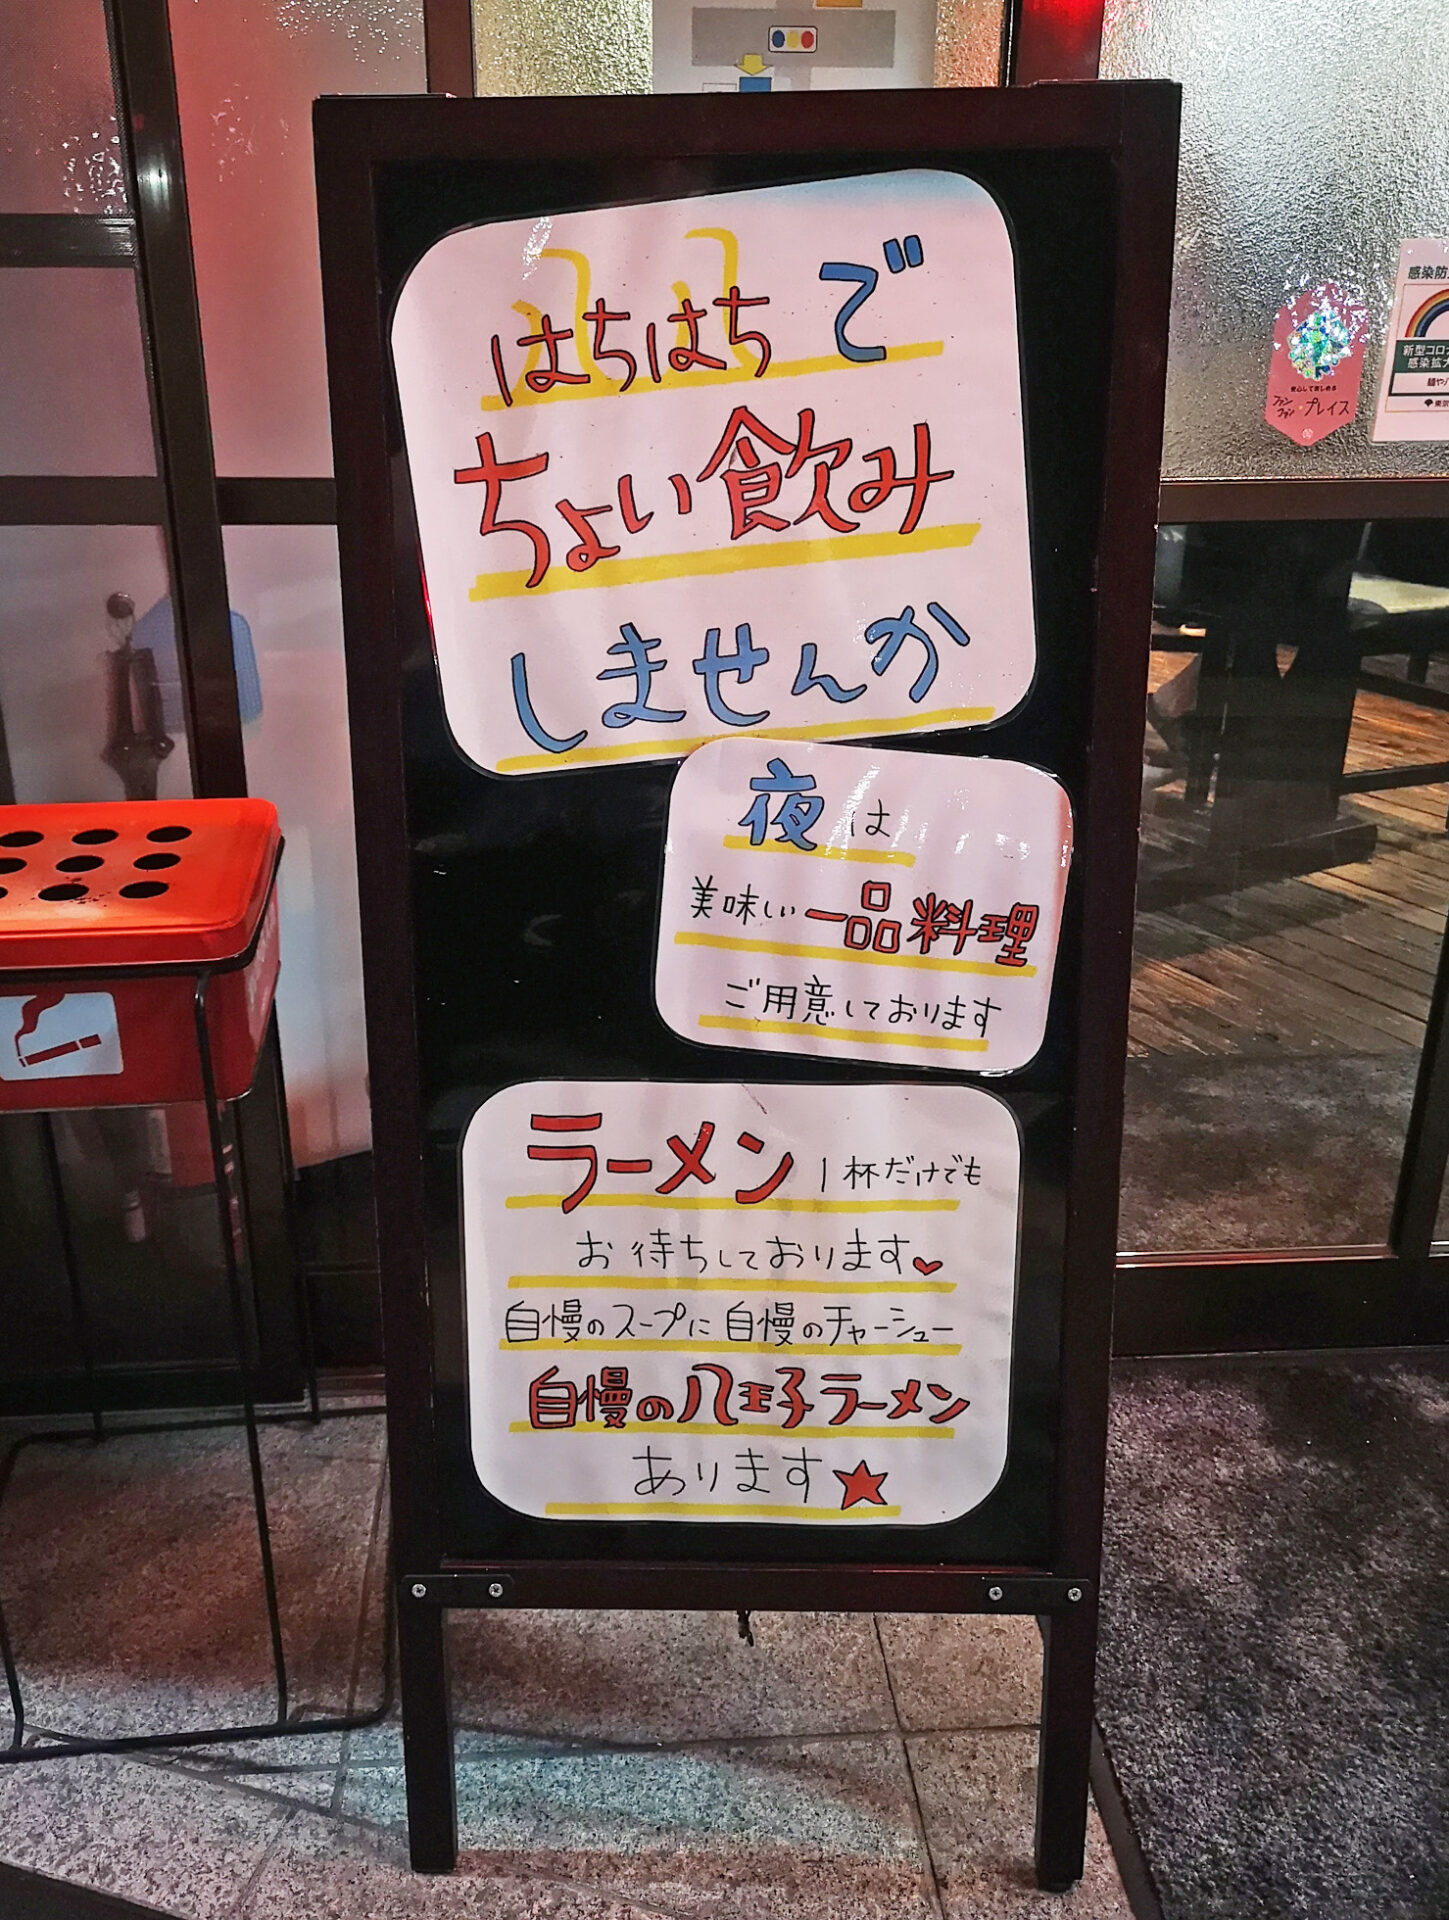 はちはちで
ちょい飲み
しませんか
夜は
美味しい一品料理
ご用意しております
ラーメン1杯だけでも
お待ちしております♥
自慢のスープに自慢のチャーシュー
自慢の八王子ラーメン
あります★
安心して楽しめる
ファン
ファン・プレイス
感染防
新型コロナ
感染拡大
麺や
東京